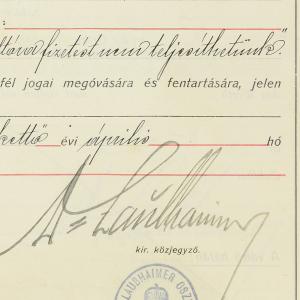 :
fizetést nem teljesíthetünk."
fél jogai megóvására és fentartására, jelen
kettő évi április hó
Dr Laubhaimer
kir. közjegyző.
LAUBHAIMER OSZ